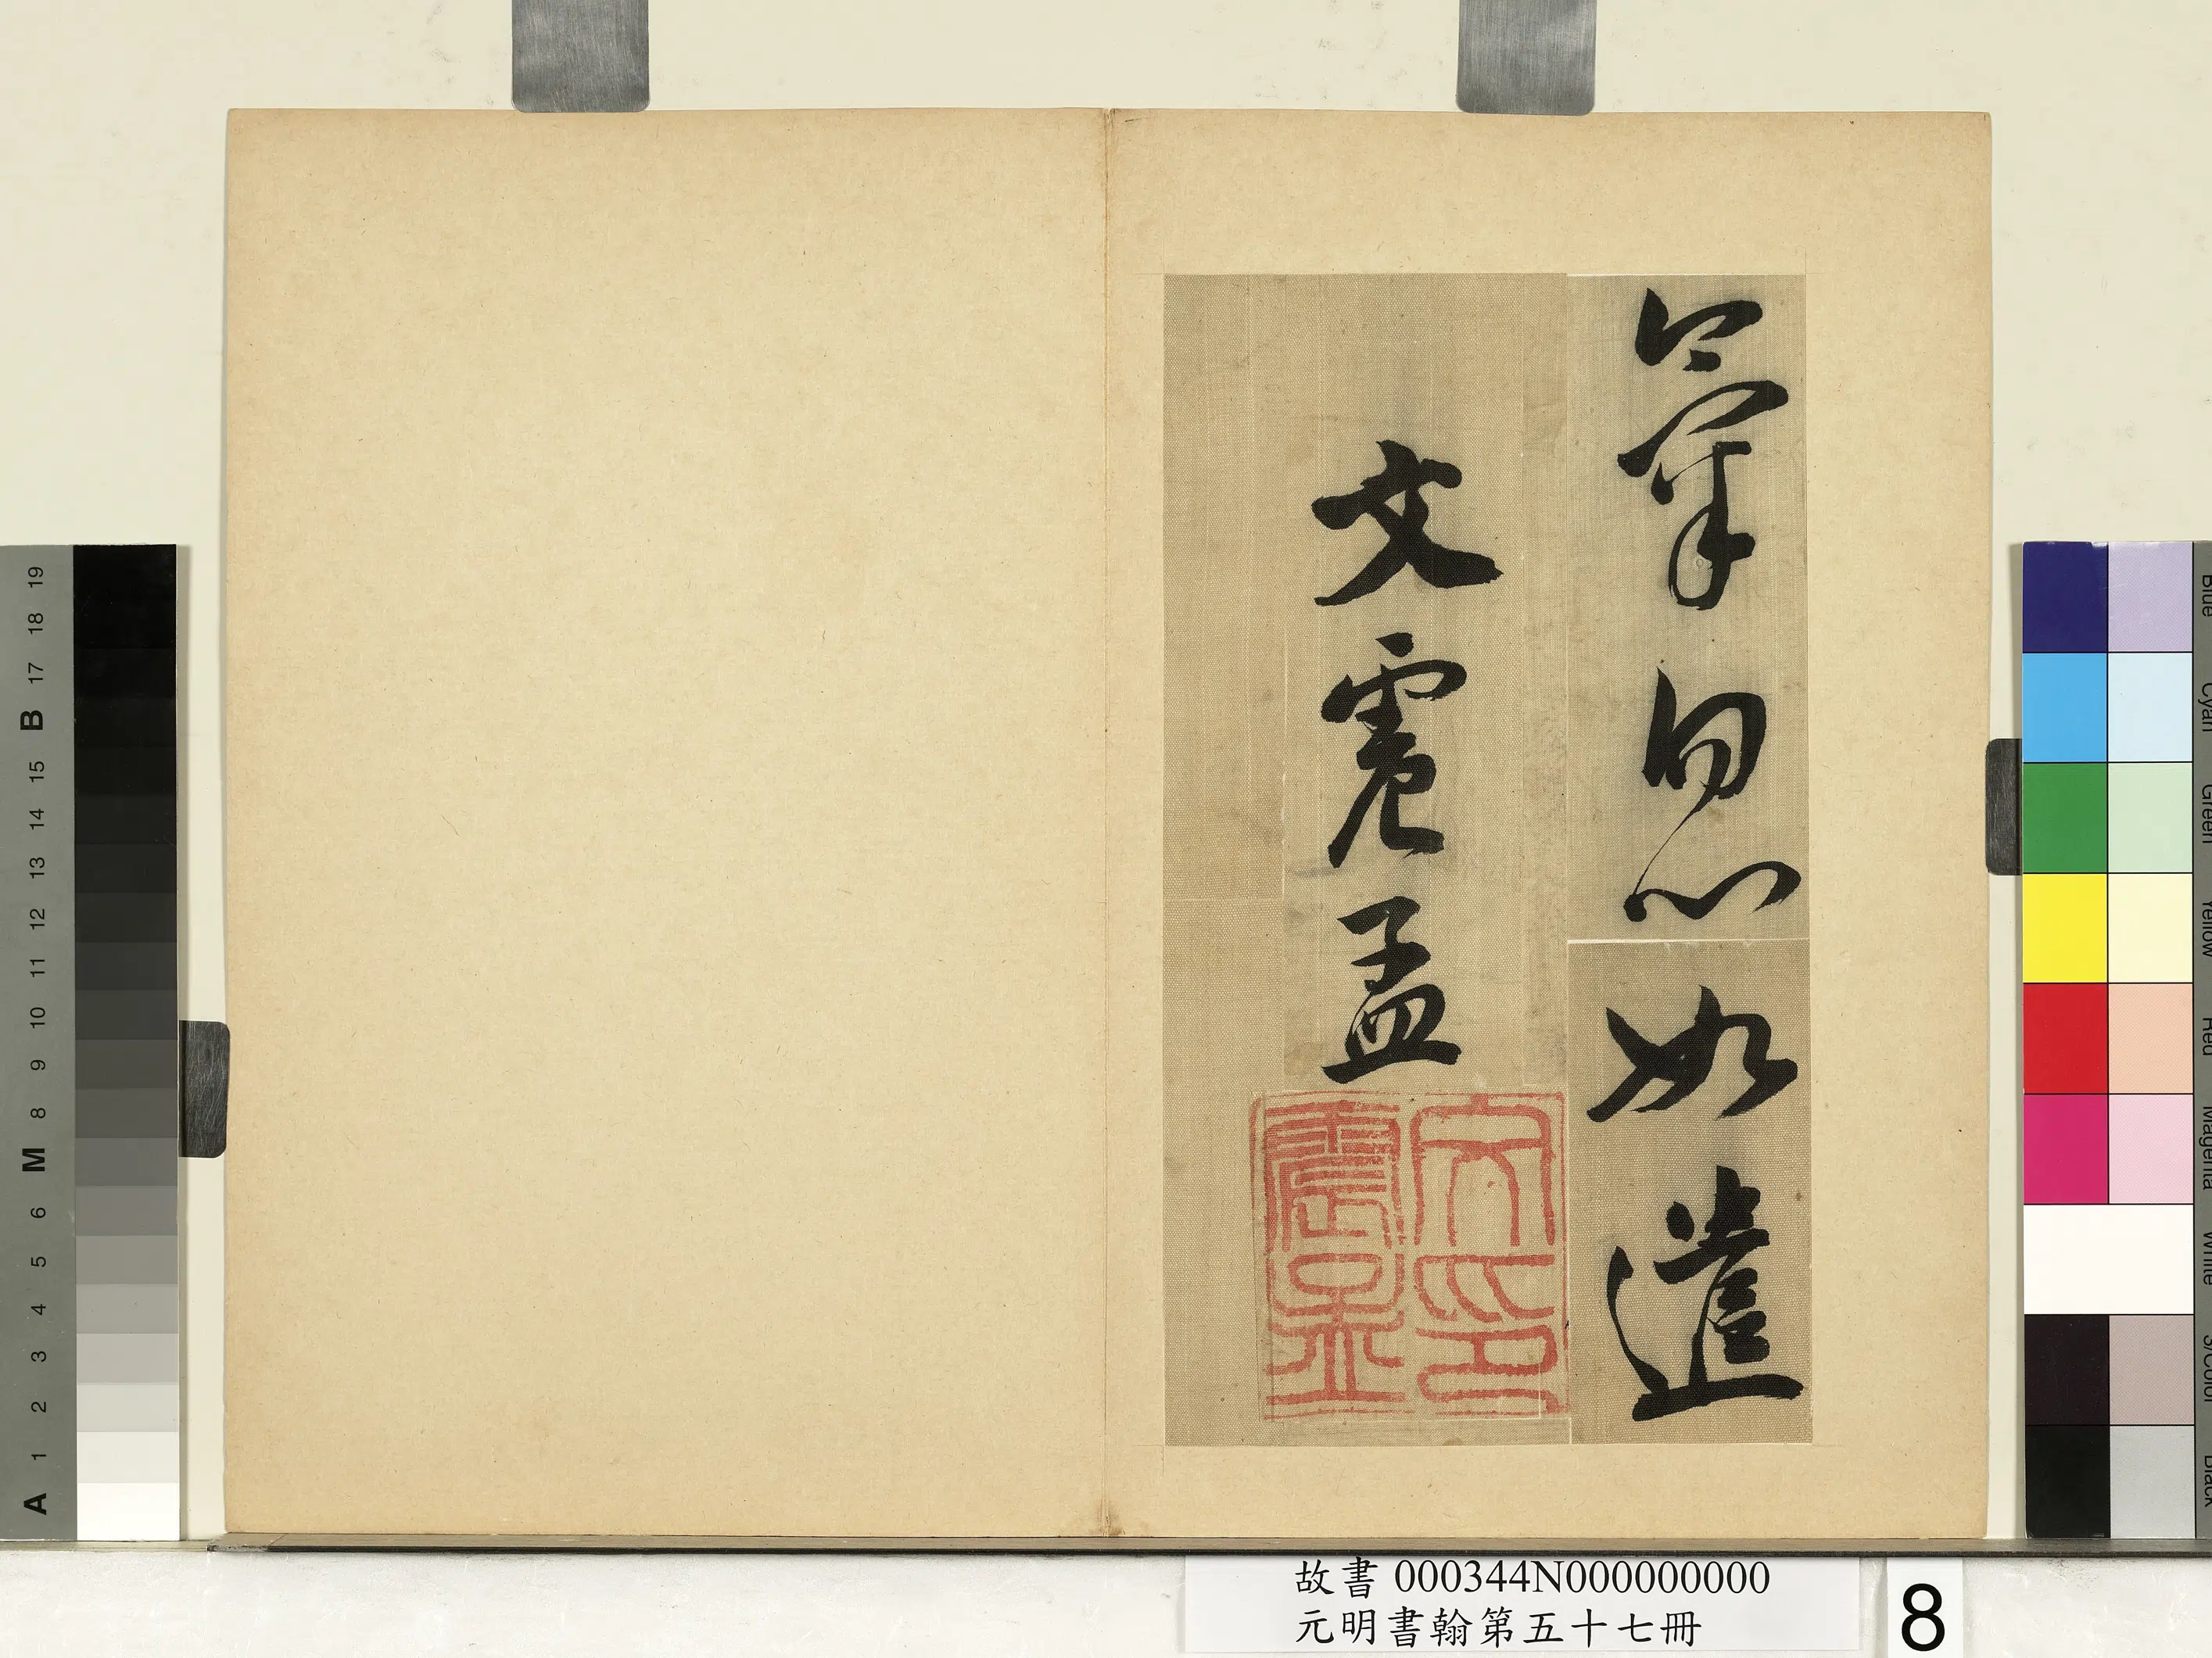 如遣
文震孟
文震孟印
故書 000344N000000000
元明書翰第五十七冊
8
19
18
17
B
15
14
13
12
11
10
9
8
M
6
5
4
3
2
1
A
Blue
Cyan
Green
Yellow
Red
Magenta
White
3/Color
Black